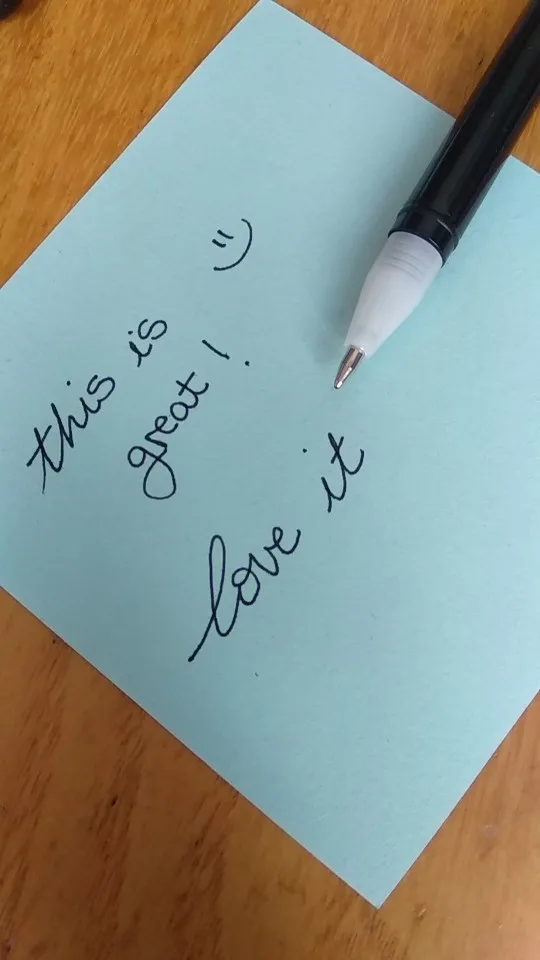 this is
great!
love it